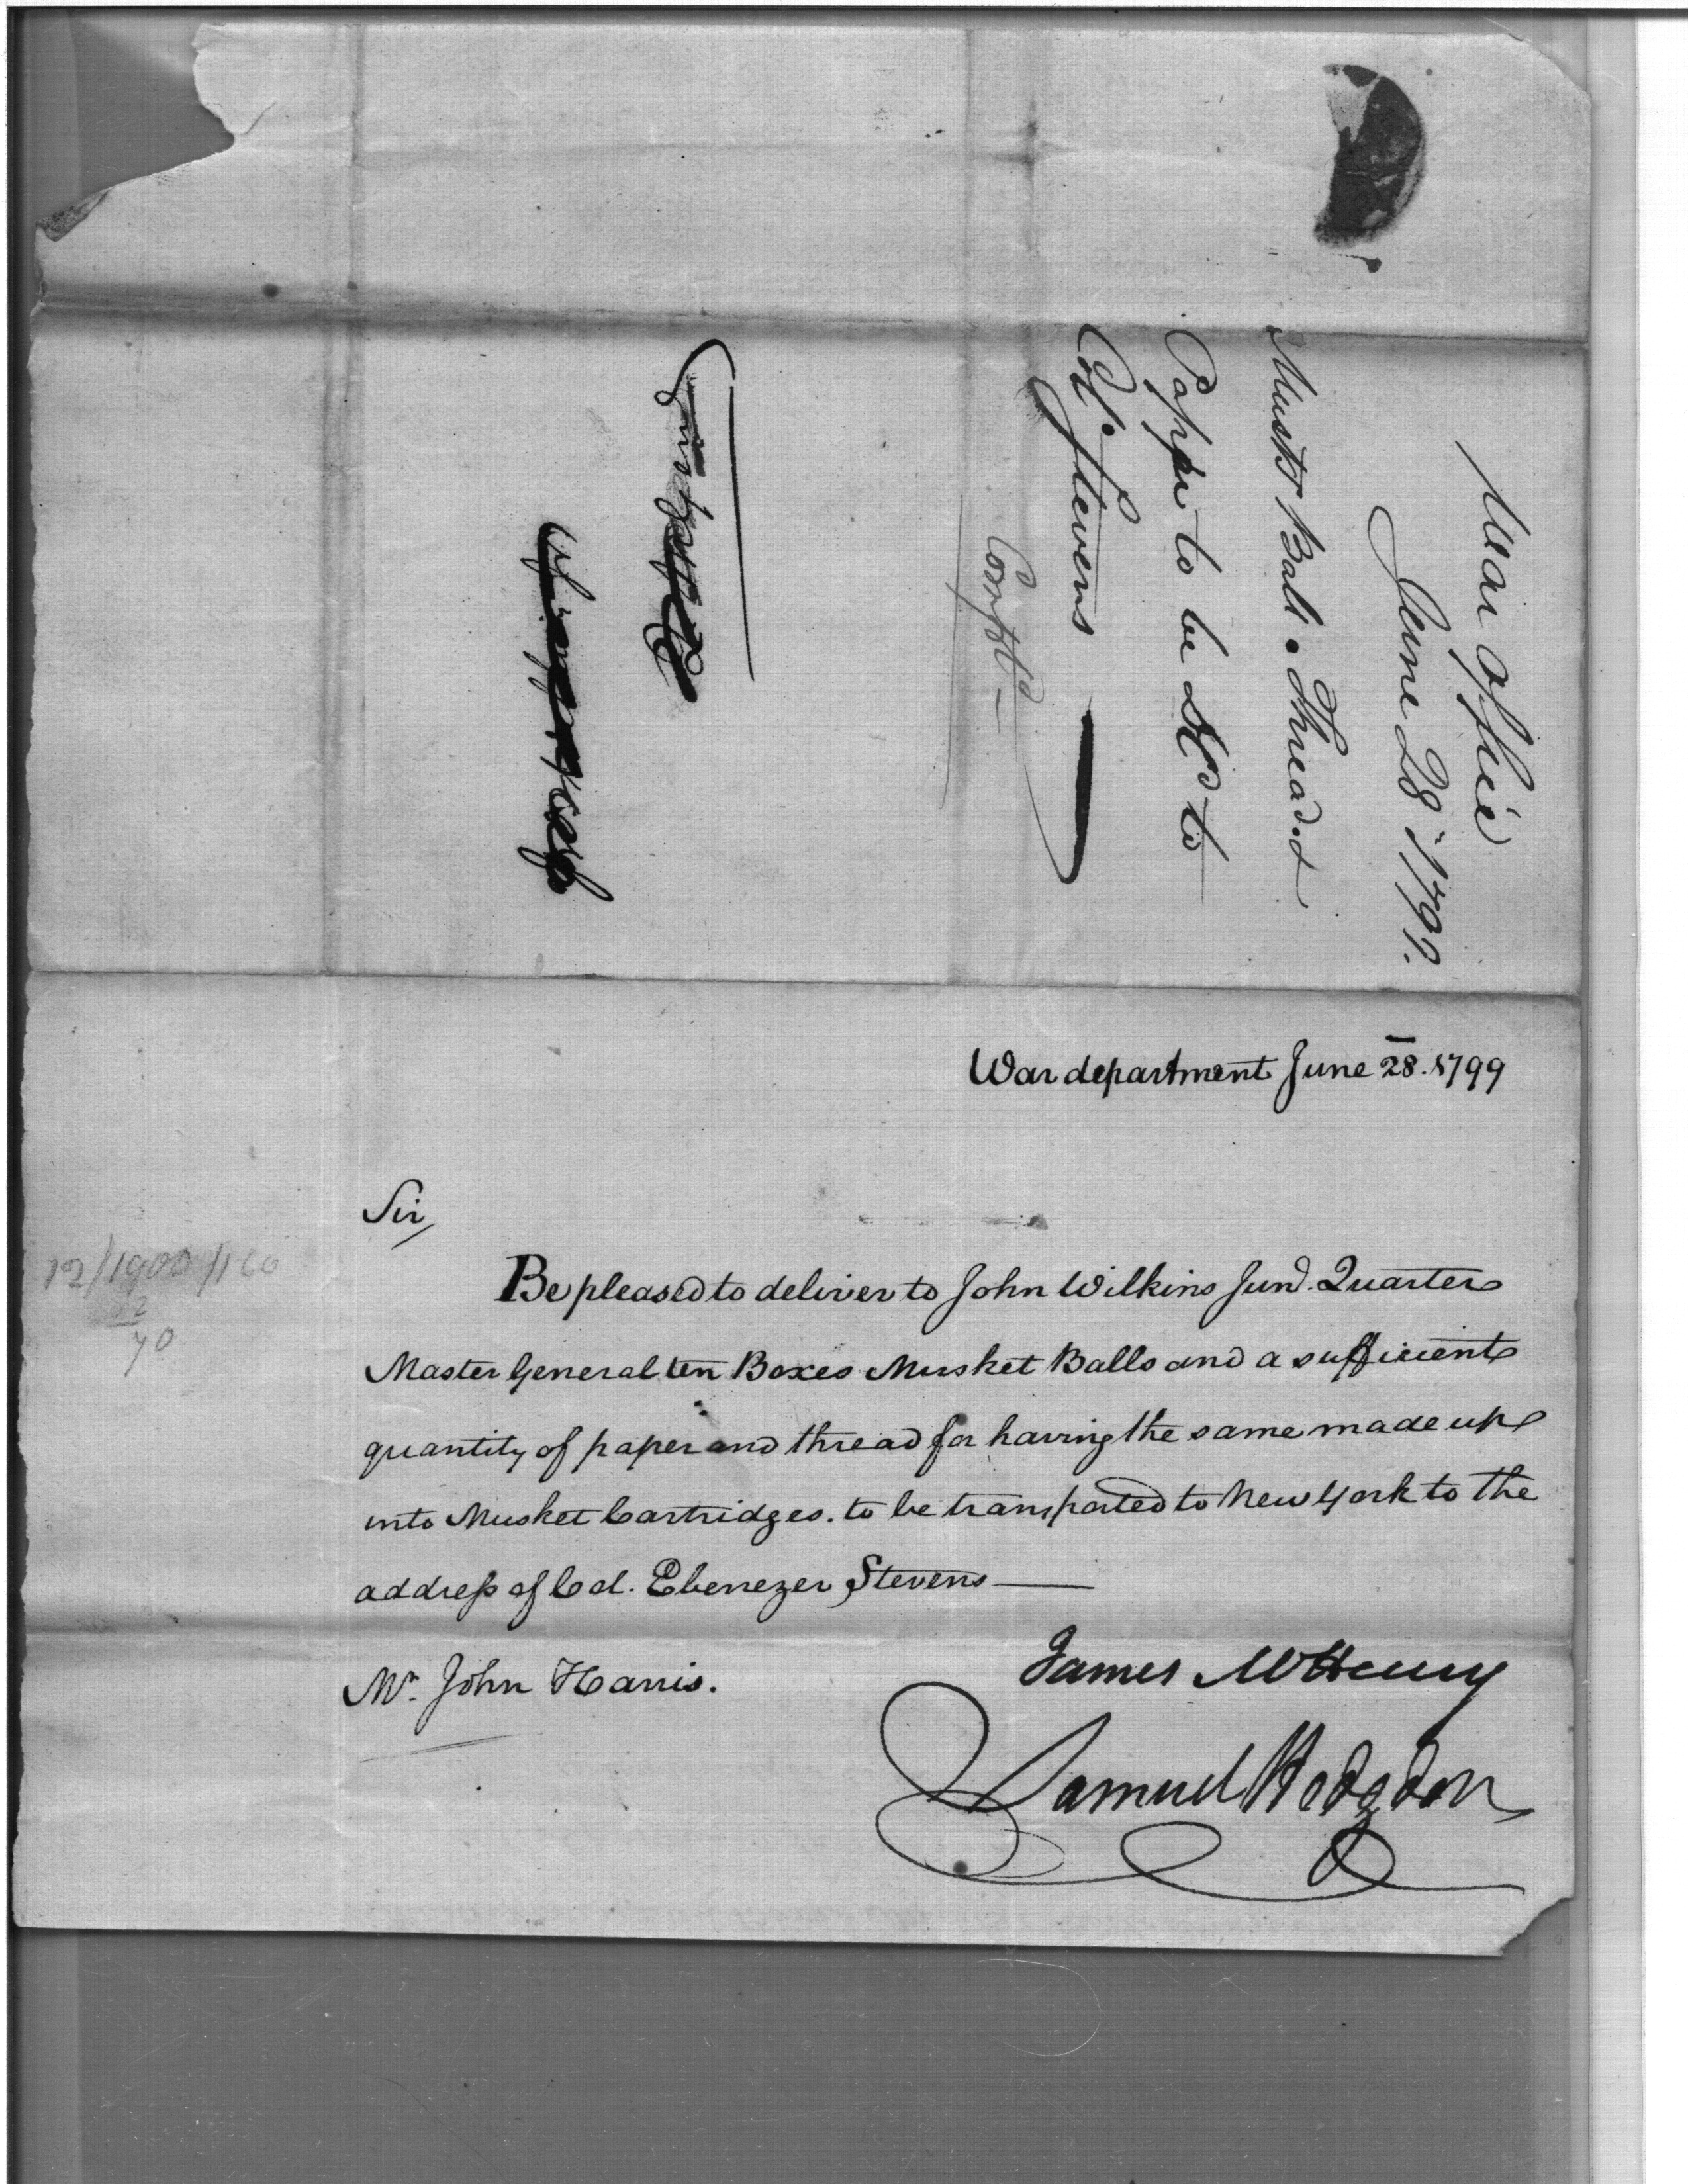 War Office
June 28th 1799.
Muskt Ball. Thread &
Paper to be Dd to
Col. Stevens
Compd
War department June 28. 1799
Sir,
Be pleased to deliver to John Wilkins Junr. Quarter
Master General ten Boxes Musket Balls and a sufficient
quantity of paper and thread for having the same made up
into Musket Cartridges. to be transported to New York to the
address of Col. Ebenezer Stevens
Mr. John Harris.
James McHenry
Samuel Hodgdon
12/1900/160
70